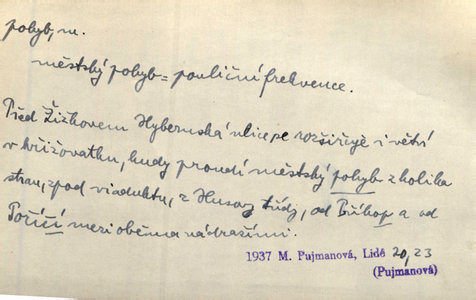 pohyb, m.
městský pohyb = pouliční frekvence.
Před Žižkovem Hybernská ulice se rozšiřuje i větví
v křižovatku, kudy proudí městský pohyb z kolika
stran, zpod viaduktu, z Husovy třídy, od Příkop a od
Poříčí mezi oběma nádražími.
1937 M. Pujmanová, Lidé 20, 23
(Pujmanová)